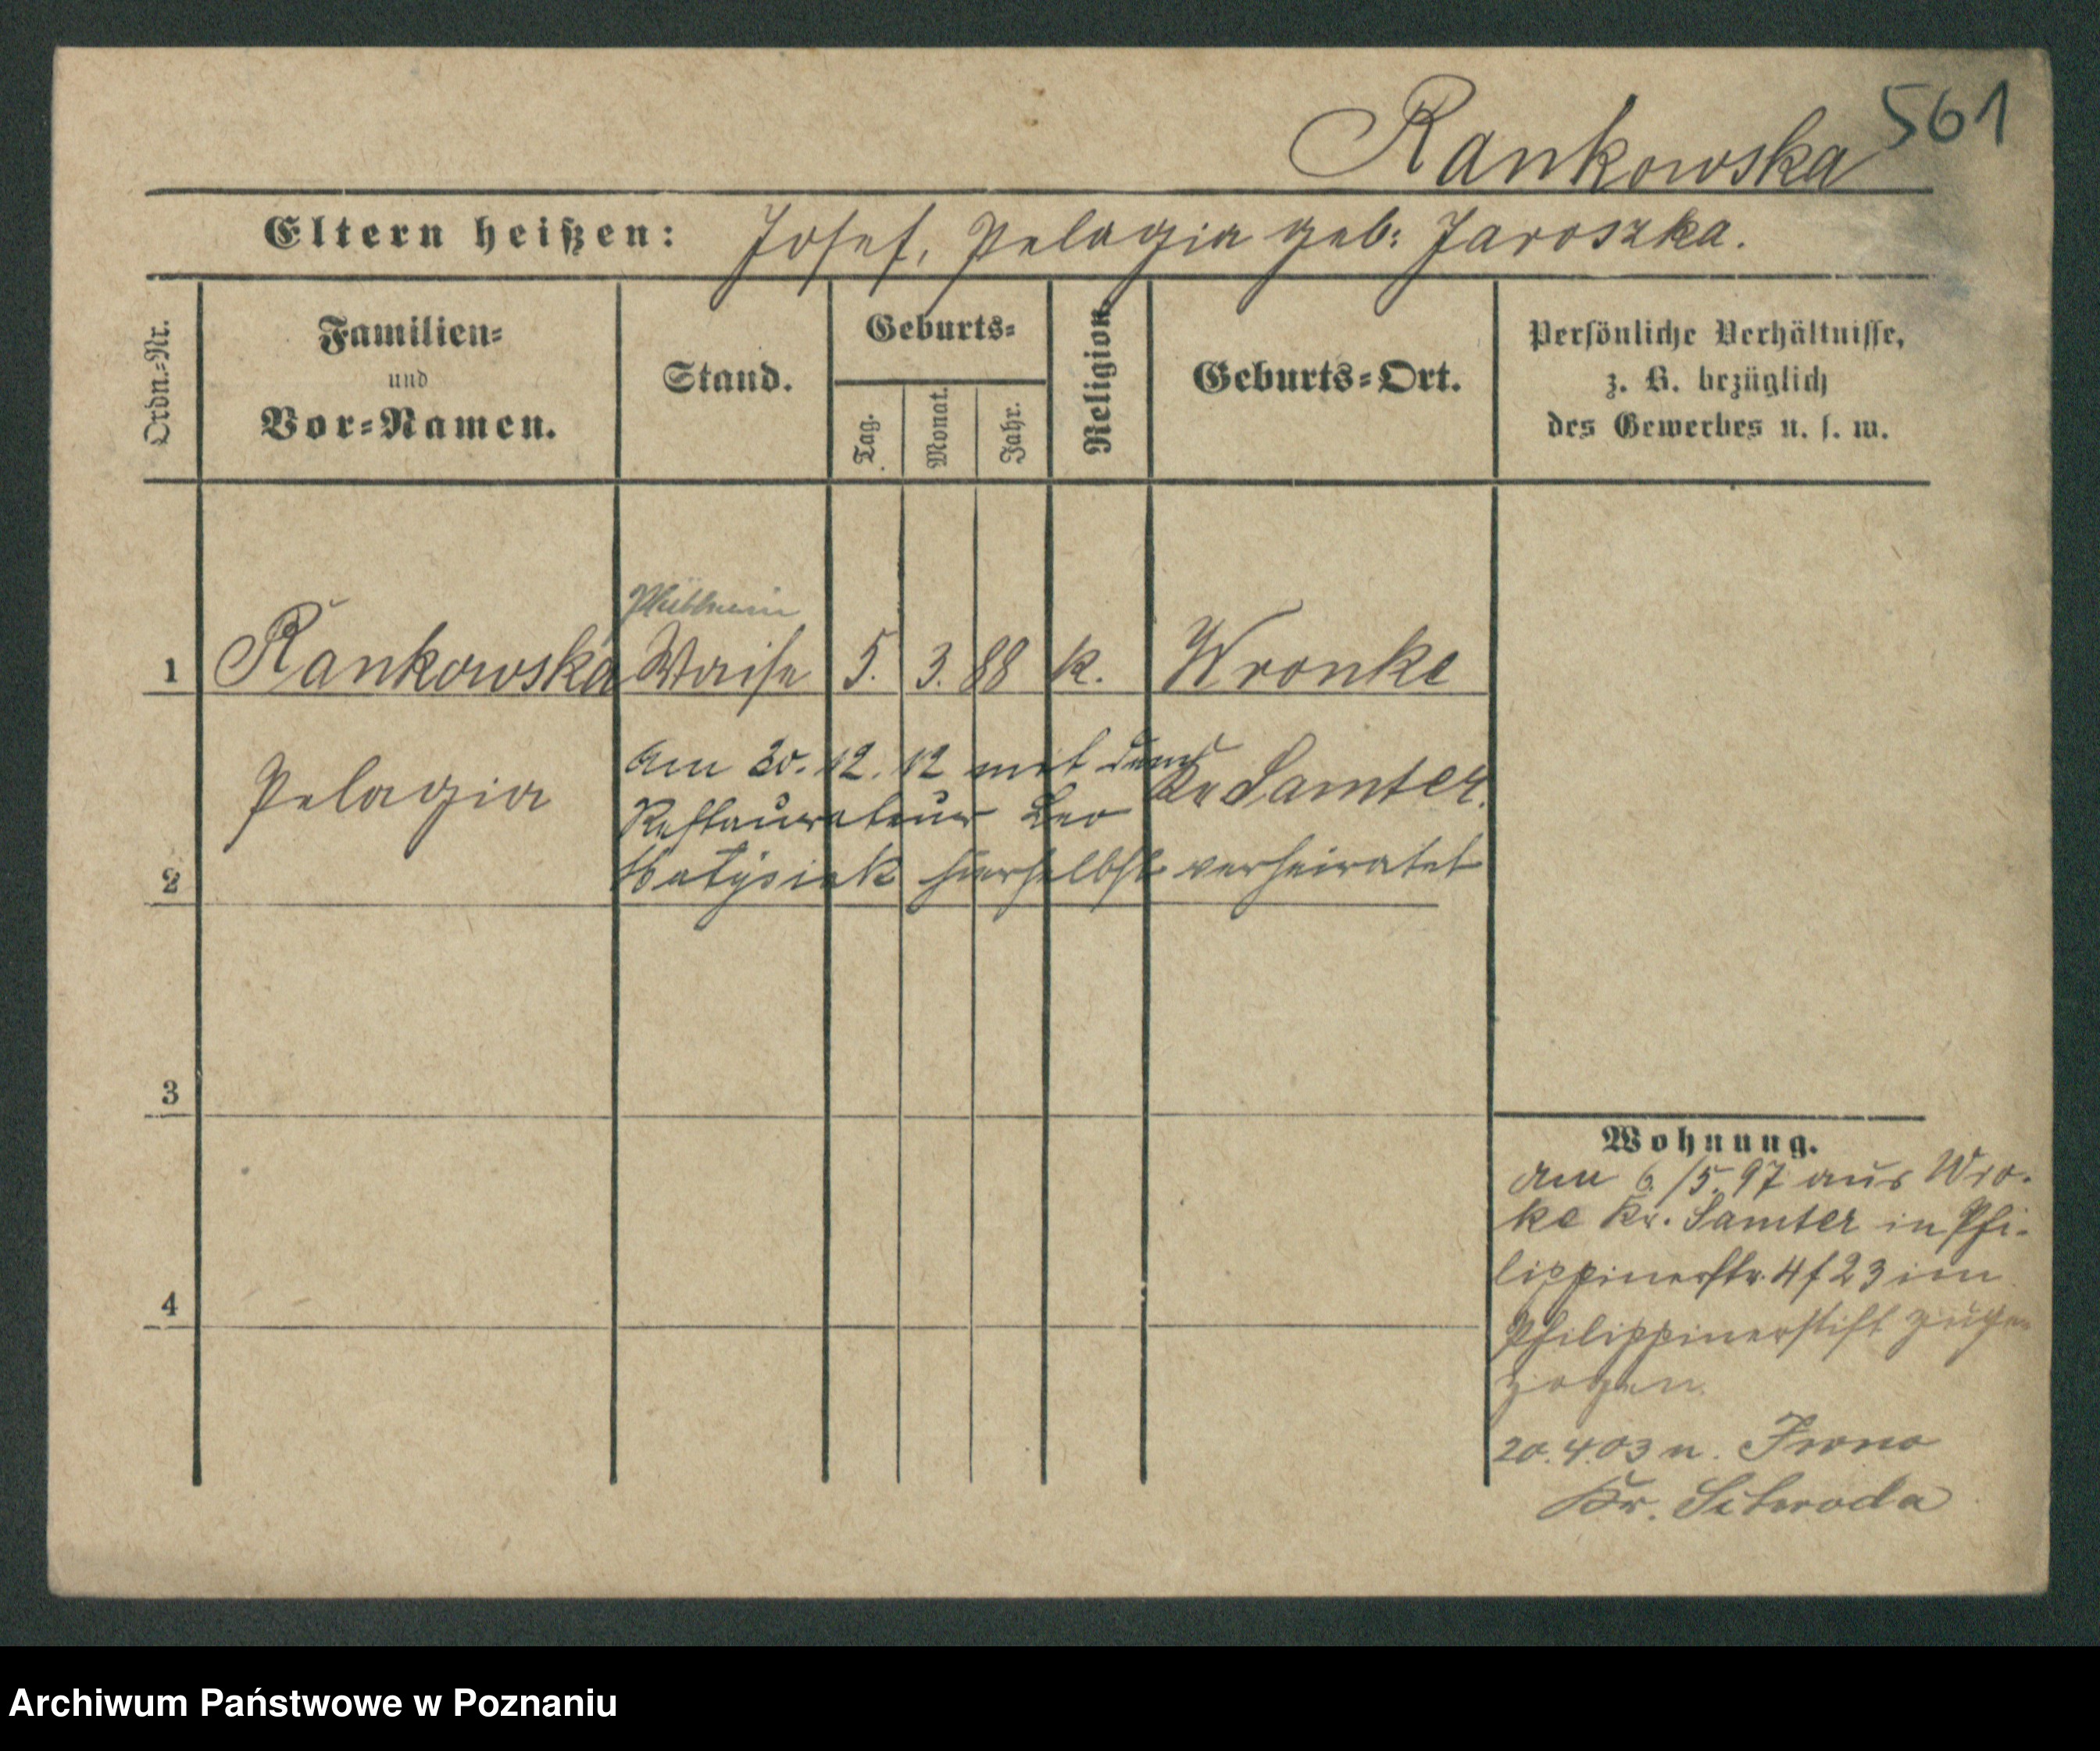 561
Rankowska
Eltern heißen: Josef, Pelagia geb: Jaroszka.
Ordn.-Nr.
Familien-
und
Vor-Namen.
Stand.
Geburts-
Tag.
Monat.
Jahr.
Religion.
Geburts-Ort.
Persönliche Verhältnisse,
z. B. bezüglich
des Gewerbes u. s. w.
1 Rankowska Waise 5. 3. 88 k. Wronke
Pelagia
Kr Samter.
am 30. 12. 12 mit dem
Restaurateur Leo
2 Matysiak hierselbst verheiratet
3
4
Wohnung.
am 6./5. 97 aus Wro-
ke Kr. Samter in Phi-
lippinerstr. 4/23 im
Philippinerstift zuge-
zogen.
20. 4. 03 n.
Kr. Schroda
Archiwum Państwowe w Poznaniu